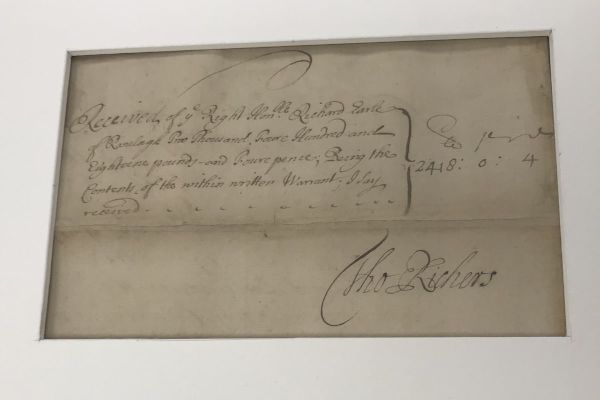 Received of ye Right Honble. Richard Earle
of Ranelagh Two Thousand Foure Hundred and
Eighteene pounds and Foure pence; Being the
Contents of the within written Warrant; I say
received
2418: 0: 4
Tho Richers